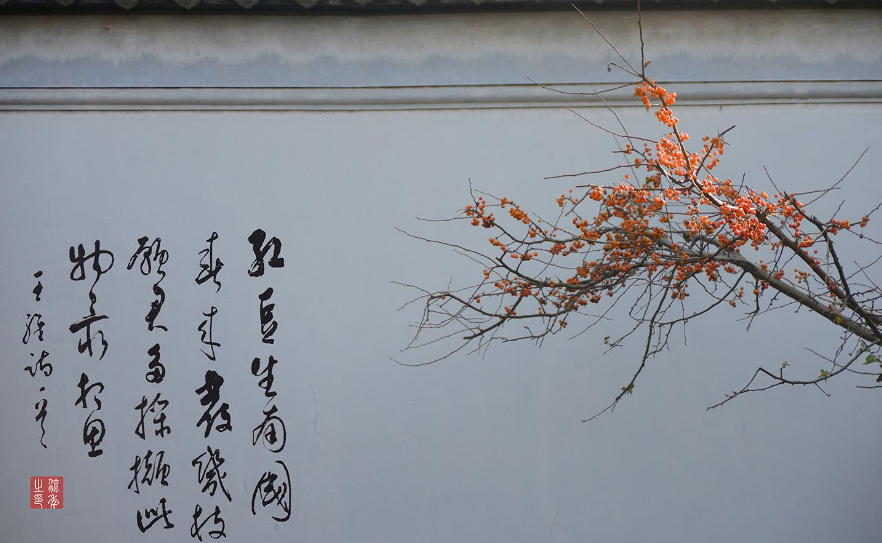 紅豆生南國
春来發幾枝
願君多採擷此
物最相思
王維詩一首